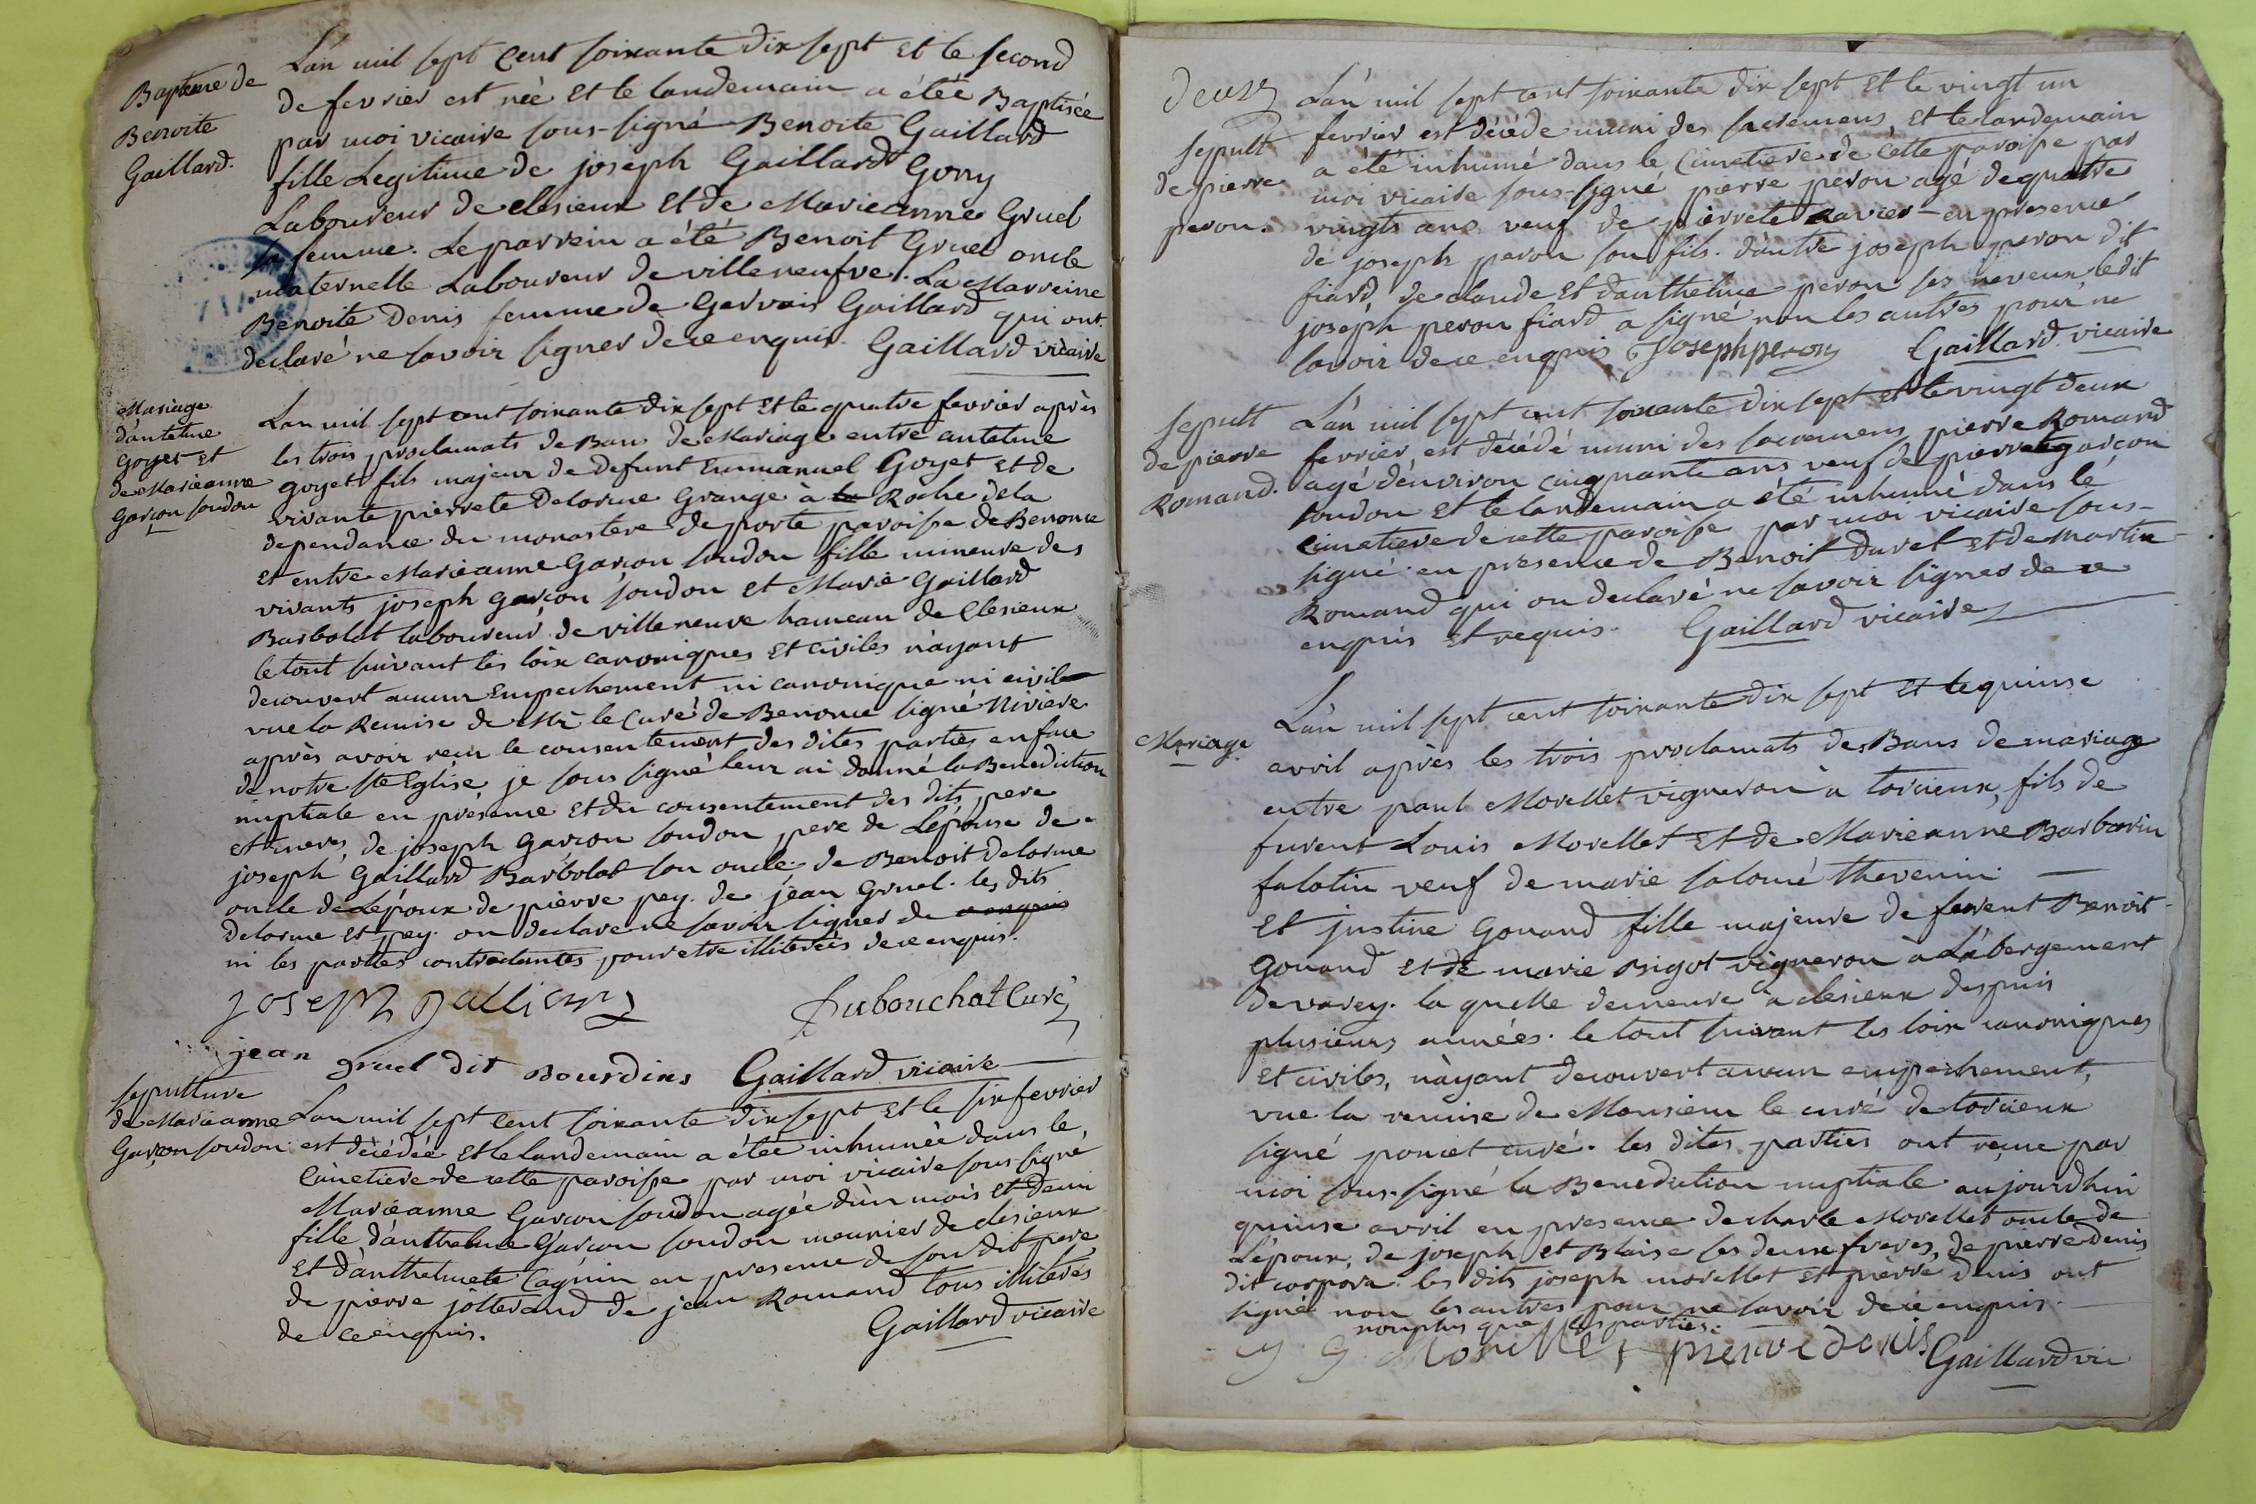 Baptême de
Benoite
Gaillard.
L'an mil sept cent soixante dix sept et le second
de fevrier est née et le landemain a étée Baptisée
par moi vicaire sous-signé Benoite Gaillard
fille Legitime de joseph Gaillard Gony
Laboureur de clesieux et de Marieanne Gruel
sa femme. Le parrein a été Benoit Gruel oncle
maternelle Laboureur de villeneufve. La Marreine
Benoite Denis femme de Gervais Gaillard qui ont
declaré ne savoir signer de ce enquis. Gaillard vicaire
Mariage
d'antelme
Goyet et
de Marieanne
Garçon soudon
L'an mil sept cent soixante dix sept et le quatre fevrier après
les trois proclamats de Ban de Mariage entre antelme
goyet fils majeur de defunt Emmanuel Goyet et de
vivante pierrete Delorme Grangé à la Roche dela
dependance du monastere de porte paroisse de Benonce
et entre Marieanne Garçon soudon fille mineure des
vivants joseph garçon soudon et Marie Gaillard
Barbolat laboureur de villeneuve hameau de Clesieux
le tout suivant les loix canoniques et civiles n'ayant
decouvert aucun Empechement ni canonique ni civile
vue la Remise de Mr le Curé de Benonce signé Niviere
après avoir reçu le consentement des dites parties en face
de notre Ste Eglise je sous signé leur ai donné la Benediction
nuptiale en présence et du consentement des dits pere
et meres, de joseph Garçon soudon pere de L'epouse de
joseph Gaillard Barbolat son oncle de Benoit Delorme
oncle de L'époux de pierre pey. de jean Gruel. les dits
delorme et pey on declare ne savoir signer de ce enquis
ni les parties contractantes pour etre illiterées de ce enquis.
joseph gallien
Dubouchat Curé
jean gruel dit Bourdins Gaillard vicaire
sepulture
de Marieanne
Garçon soudon
L'an mil sept cent soixante dix sept et le six fevrier
est décédée et le landemain a étée inhumée dans le
Cimetiere de cette paroisse par moi vicaire sous signé
Marieanne Garçon soudon agée d'un mois et demi
fille d'anthelme Garçon soudon meunier de clesieux
et d'anthelmete Cagnin en presence de son dit pere
de pierre jolterand de jean Romand tous illiterés
de ce enquis.
Gaillard vicaire
deux
sepult
de pierre
peron.
L'an mil sept cent soixante dix sept et le vingt un
fevrier est décédé muni des sacremens, et le landemain
a été inhumé dans le cimetiere de cette paroisse par
moi vicaire sous-signé pierre peron agé de quatre
vingts ans veuf de pierrete Ravier en presence
de joseph peron son fils. d'autre joseph peron dit
fiard, de claude et d'anthelme peron ses neveux ledit
joseph peron fiard a signé non les autres pour ne
savoir de ce enquis Joseph peron Gaillard vicaire
sepult
de pierre
Romand.
L'an mil sept cent soixante dix sept et le vingt deux
fevrier est décédé muni des sacremens pierre Romand
agé d'environ cinquante ans veuf de pierrete garçon
soudon et le landemain a été inhumé dans le
cimetiere de cette paroisse par moi vicaire sous-
signé en presence de Benoit Duret et de Martin
Romand qui on declaré ne savoir signer de ce
enquis et requis. Gaillard vicaire
Mariage
L'an mil sept cent soixante dix sept et le quinse
avril après les trois proclamats de Bans de mariage
entre paul Morellet vigneron à torcieux, fils de
furent Louis Morellet et de Marieanne Barbarin
falatin veuf de marie salomé thevenin.
Et justine Gonand fille majeure de furent Benoit
Gonand et de marie Brigot vigneron à L'abergement
de varey. la quelle demeure à clesieux despuis
plusieurs années. le tout suivant les loix canoniques
et civiles, n'ayant decouvert aucun empechement,
vue la remise de Monsieur le curé de torcieux
signé poncet curé. les dites parties ont reçue par
moi sous-signé la Benediction nuptiale aujourdhui
quinse avril en presence de charle Morellet oncle de
L'époux, de joseph et Blaise ses deux freres, de pierre Denis
dit corpora. les dits joseph morellet et pierre denis ont
signé non les autres pour ne savoir de ce enquis.
non plus que les parties.
Morellet pierre denis Gaillard vic